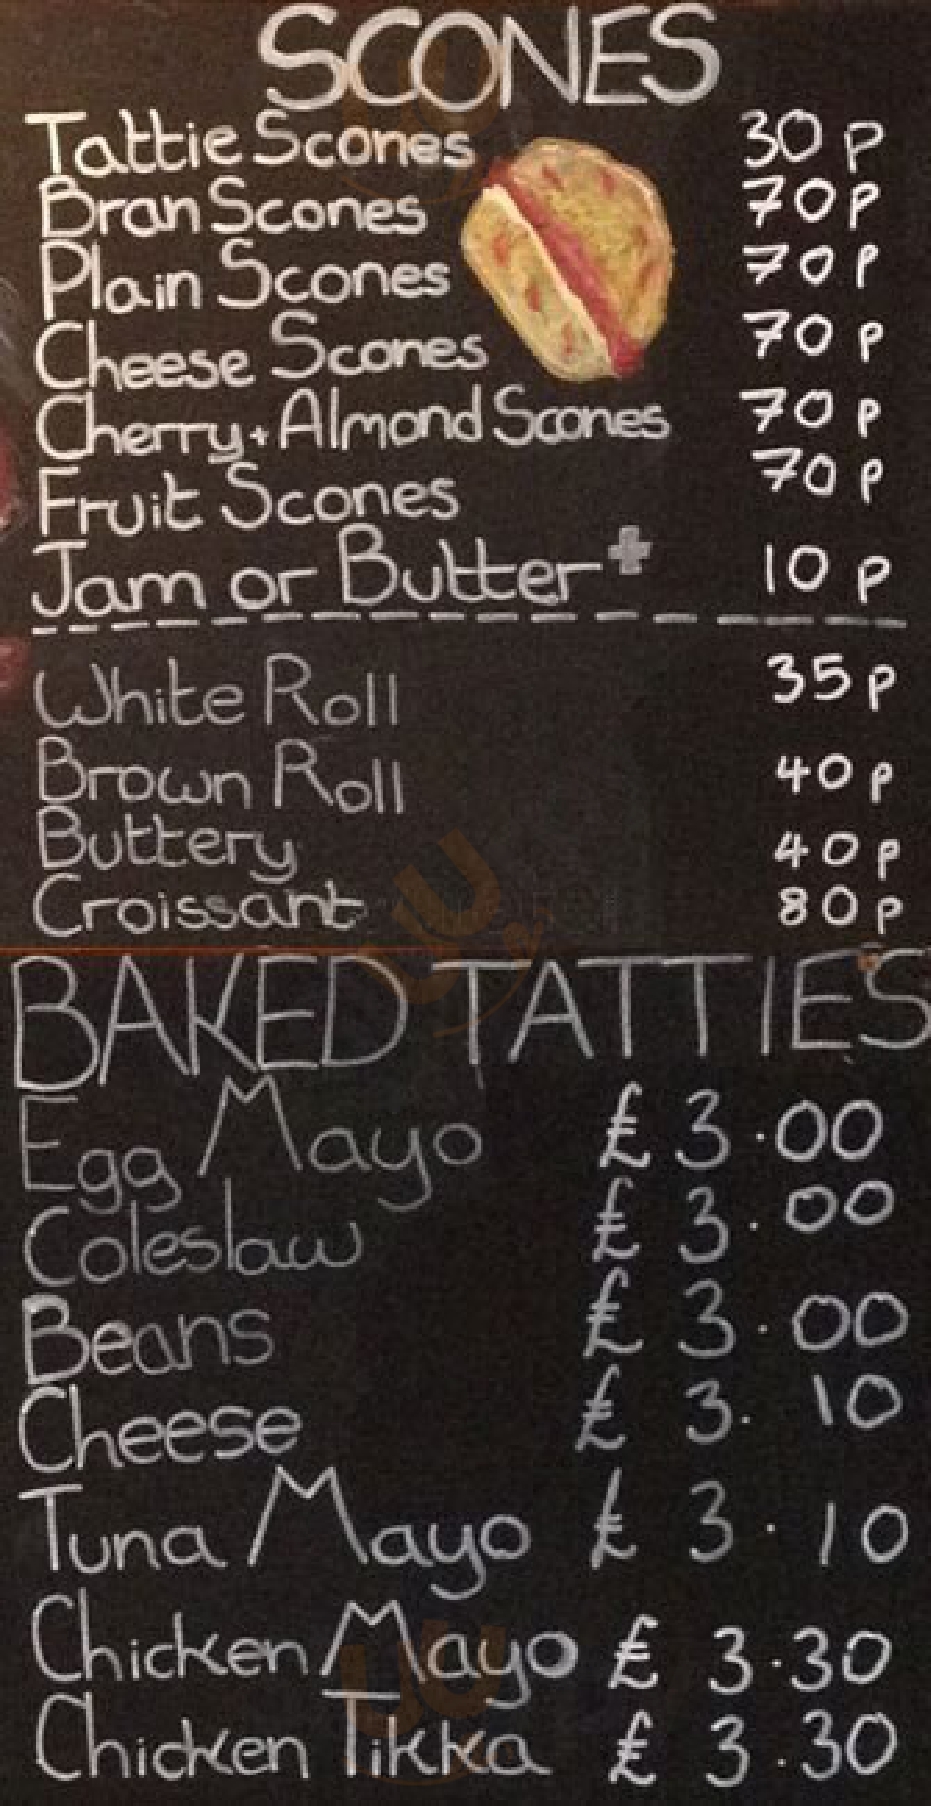 SCONES
Tattie Scones 30p
Bran Scones 70p
Plain Scones 70p
Cheese Scones 70p
Cherry + Almond Scones 70p
Fruit Scones 70p
Jam or Butter + 10p
White Roll 35p
Brown Roll 40p
Buttery 40p
Croissant 80p
BAKED TATTIES
Egg Mayo £3.00
Coleslaw £3.00
Beans £3.00
Cheese £3.10
Tuna Mayo £3.10
Chicken Mayo £3.30
Chicken Tikka £3.30